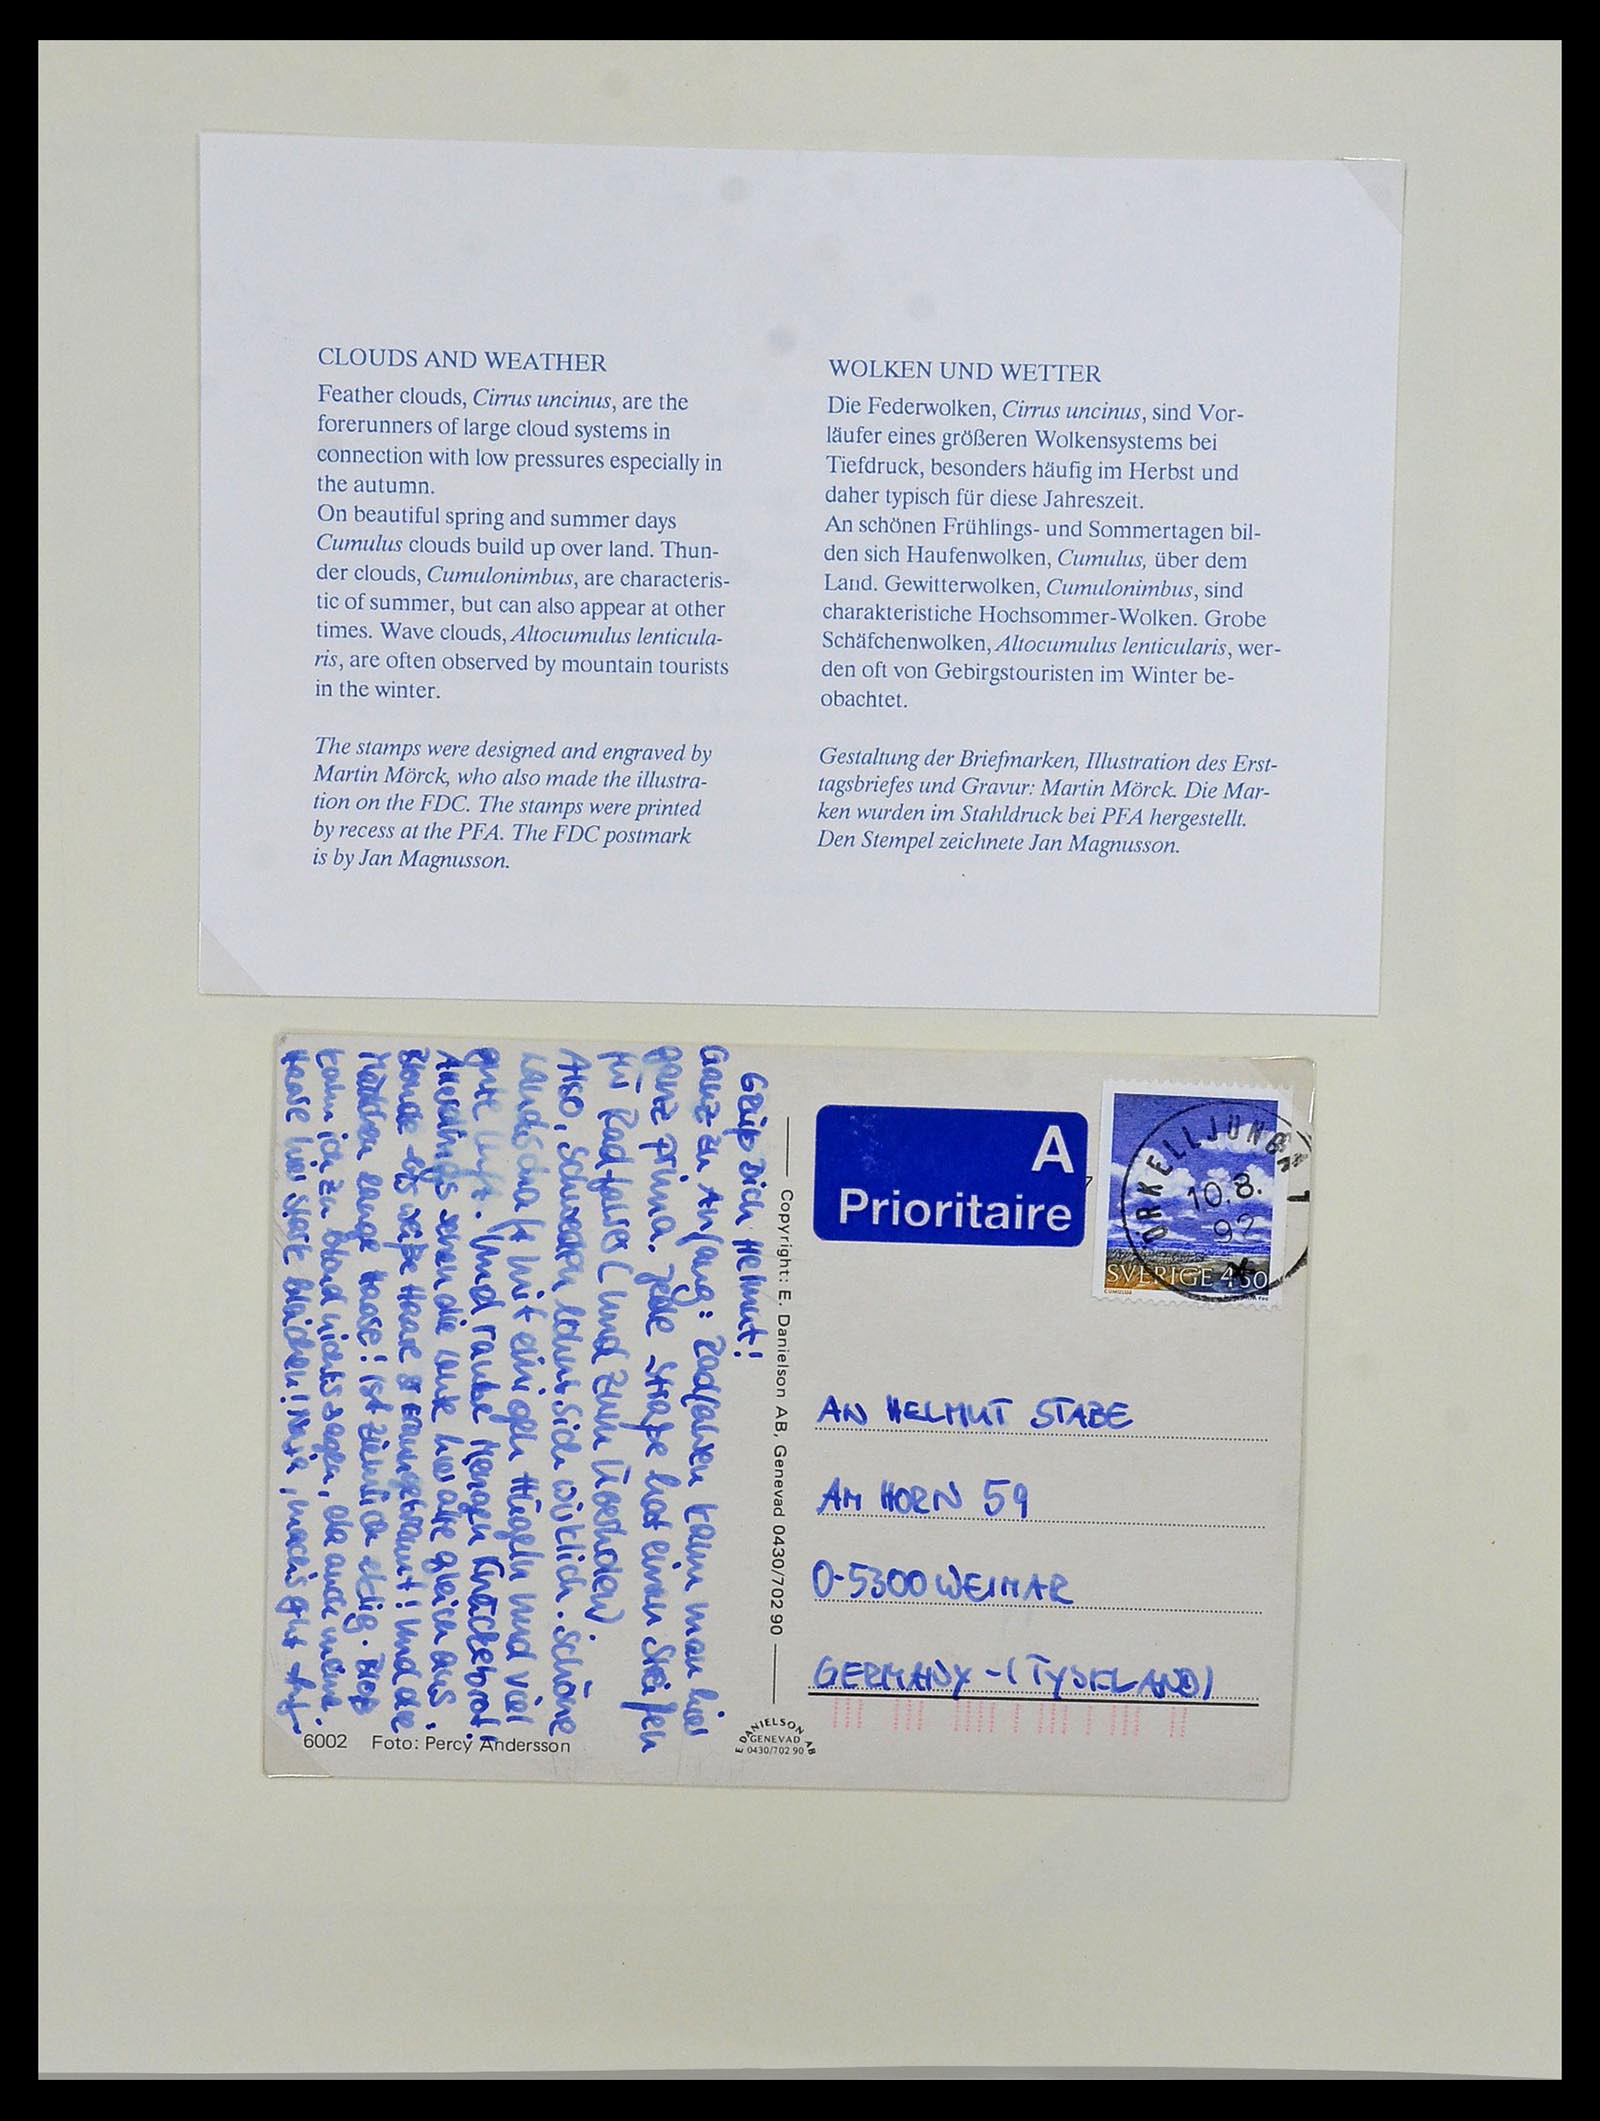 CLOUDS AND WEATHER
Feather clouds, Cirrus uncinus, are the
forerunners of large cloud systems in
connection with low pressures especially in
the autumn.
On beautiful spring and summer days
Cumulus clouds build up over land. Thun-
der clouds, Cumulonimbus, are characteris-
tic of summer, but can also appear at other
times. Wave clouds, Altocumulus lenticula-
ris, are often observed by mountain tourists
in the winter.
The stamps were designed and engraved by
Martin Mörck, who also made the illustra-
tion on the FDC. The stamps were printed
by recess at the PFA. The FDC postmark
is by Jan Magnusson.
WOLKEN UND WETTER
Die Federwolken, Cirrus uncinus, sind Vor-
läufer eines größeren Wolkensystems bei
Tiefdruck, besonders häufig im Herbst und
daher typisch für diese Jahreszeit.
An schönen Frühlings- und Sommertagen bil-
den sich Haufenwolken, Cumulus, über dem
Land. Gewitterwolken, Cumulonimbus, sind
charakteristiche Hochsommer-Wolken. Grobe
Schäfchenwolken, Altocumulus lenticularis, wer-
den oft von Gebirgstouristen im Winter be-
obachtet.
Gestaltung der Briefmarken, Illustration des Erst-
tagsbriefes und Gravur: Martin Mörck. Die Mar-
ken wurden im Stahldruck bei PFA hergestellt.
Den Stempel zeichnete Jan Magnusson.
Grüß Dich Helmut!
Ganz zu Anfang: Radfahren kann man hier
ganz prima. Jede Straße hat einen Streifen
für Radfahrer (und zum Überholen).
Also, Schweden lohnt sich wirklich. Schöne
Landschaft mit einigen Hügeln und viel
gute Luft. Und rauhe Mengen Knäckebrot!
Allerdings sehen die Leute hier alle gleich aus.
Blonde bis weiße Haare & braungebrannt! Und die
Mädchen lange Haare! Ist ziemlich eklig. Bloß
kann ich zu blond nichts sagen, da auch meine
Haare hier stark bleichen! Naja, machs gut
Copyright: E. Danielson AB, Genevad 0430/702 90
6002 Foto: Percy Andersson
E. DANIELSON AB
GENEVAD
0430/702 90
A
Prioritaire
ÖRKELLJUNGA 1
10.8.
92
SVERIGE 4.50
CUMULUS
AN HELMUT STABE
AM HORN 59
O-5300 WEIMAR
GERMANY - (TYSKLAND)